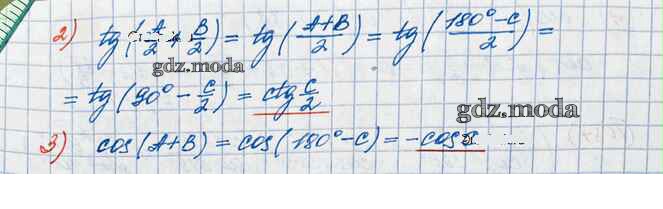 2) tg(A/2 + B/2) = tg((A+B)/2) = tg((180° - C)/2) =
gdz.moda
= tg(90° - C/2) = ctg C/2
gdz.moda
3) cos(A+B) = cos(180° - C) = -cos